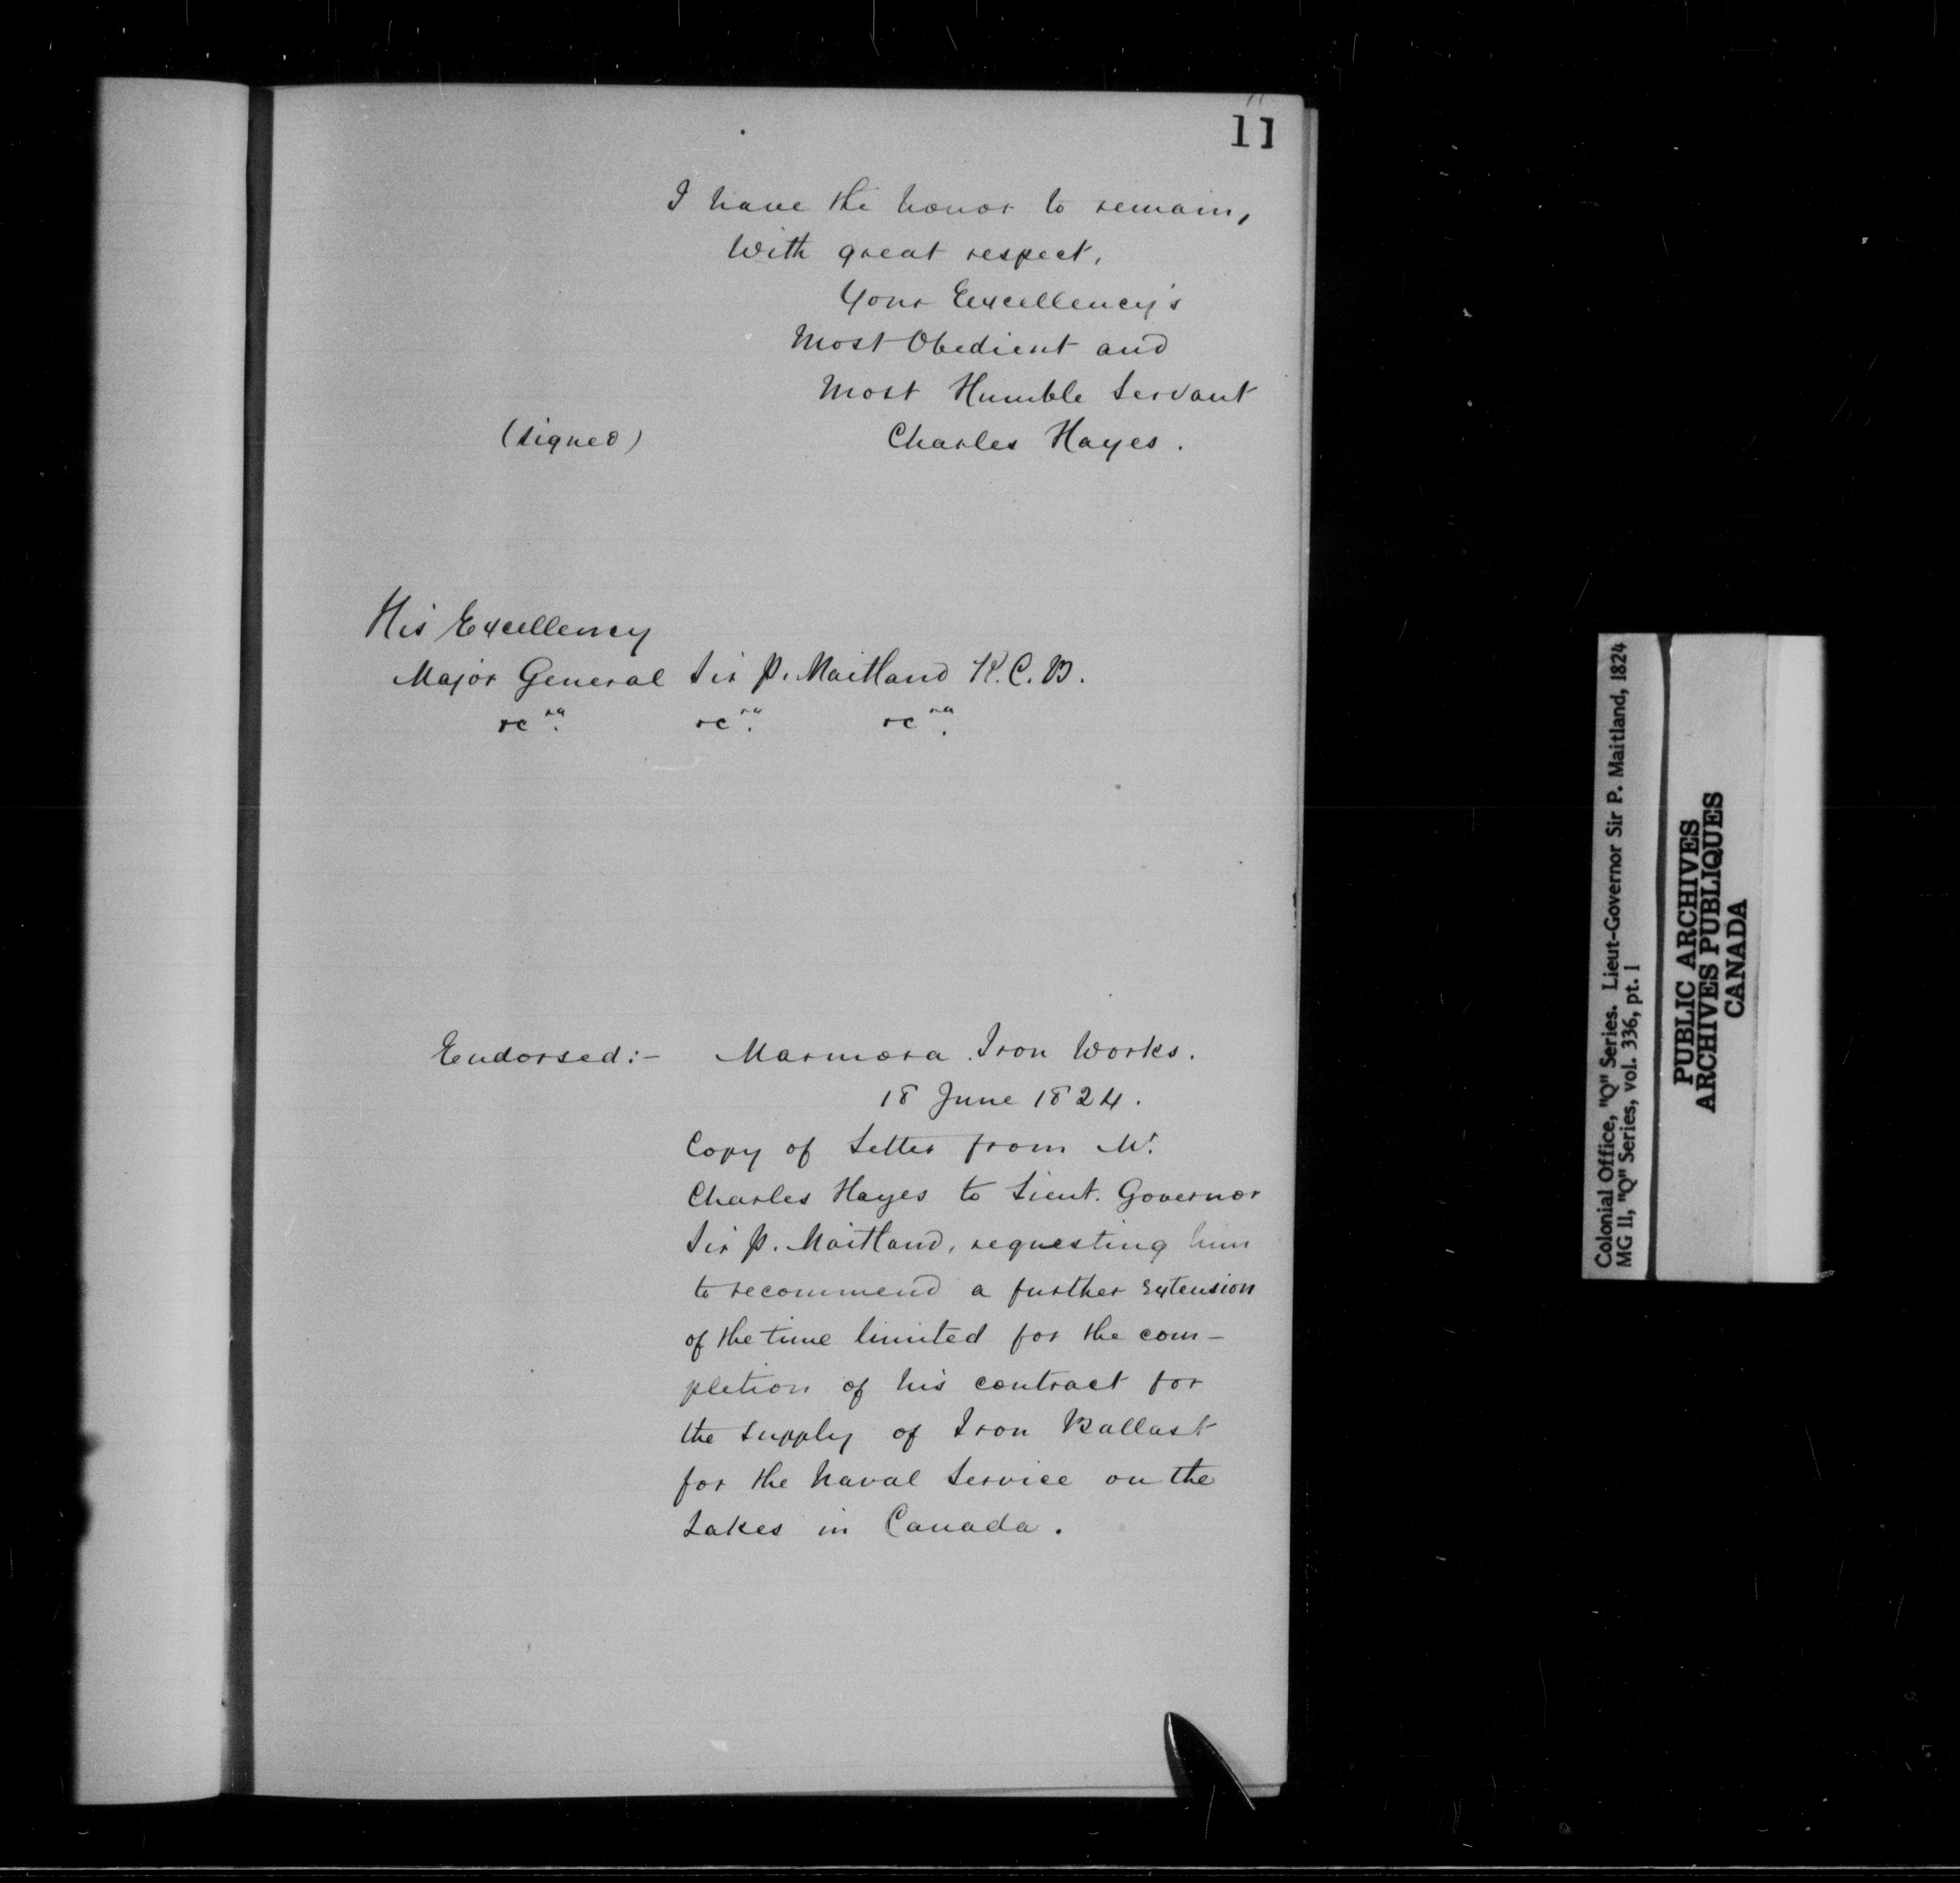 11
I have the honor to remain,
With great respect,
Your Excellency's
Most Obedient and
Most Humble Servant
(Signed) Charles Hayes.
His Excellency
Major General Sir P. Maitland K.C.B.
&c ra. &c ra. &c ra.
Endorsed:- Marmora Iron Works.
18 June 1824.
Copy of Letter from Mr.
Charles Hayes to Lieut. Governor
Sir P. Maitland, requesting him
to recommend a further extension
of the time limited for the com-
pletion of his contract for
the supply of Iron Ballast
for the Naval Service on the
Lakes in Canada.
Colonial Office, "Q" Series. Lieut-Governor Sir P. Maitland, 1824
MG 11, "Q" Series, vol. 336, pt. 1
PUBLIC ARCHIVES
ARCHIVES PUBLIQUES
CANADA